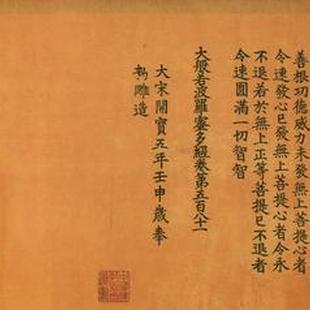 善根功德威力未發無上菩提心者
令速發心已發無上菩提心者令永
不退若於無上正等菩提已不退者
令速圓滿一切智智
大般若波羅蜜多經卷第五百八十一
大宋開寶五年壬申歲奉
勑雕造